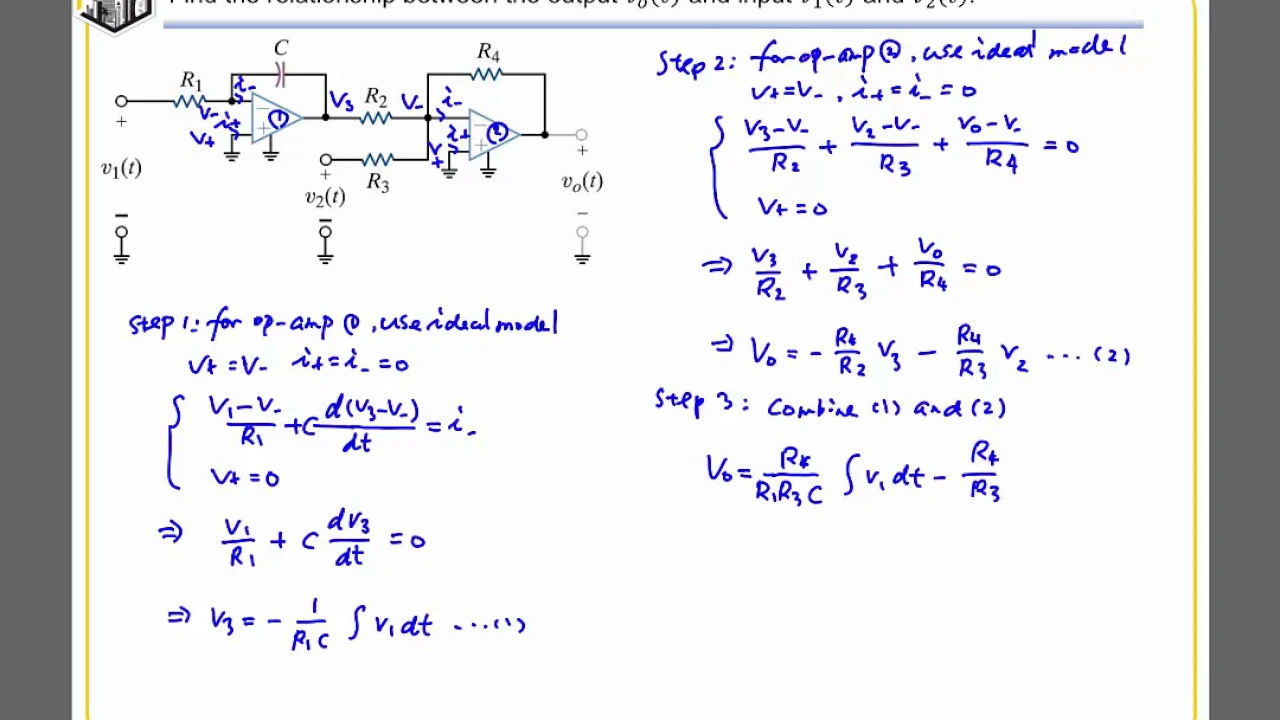 Find the relationship between the output v_o(t) and input v_1(t) and v_2(t).
C
R_4
R_1
i_-
V_3
R_2
V_-
i_-
V_-
i_+
①
i_+
②
V_+
V_+
v_1(t)
R_3
v_2(t)
v_o(t)
Step 1: for op-amp ①, use ideal model
V_+ = V_- i_+ = i_- = 0
(V_1 - V_-)/R_1 + C d(V_3 - V_-)/dt = i_-
V_+ = 0
⇒ V_1/R_1 + C dV_3/dt = 0
⇒ V_3 = - 1/(R_1 C) ∫ v_1 dt ...(1)
Step 2: for op-amp ②, use ideal model
V_+ = V_- , i_+ = i_- = 0
(V_3 - V_-)/R_2 + (V_2 - V_-)/R_3 + (V_0 - V_-)/R_4 = 0
V_+ = 0
⇒ V_3/R_2 + V_2/R_3 + V_0/R_4 = 0
⇒ V_0 = - R_4/R_2 V_3 - R_4/R_3 V_2 ...(2)
Step 3: Combine (1) and (2)
V_0 = R_4/(R_1 R_3 C) ∫ v_1 dt - R_4/R_3